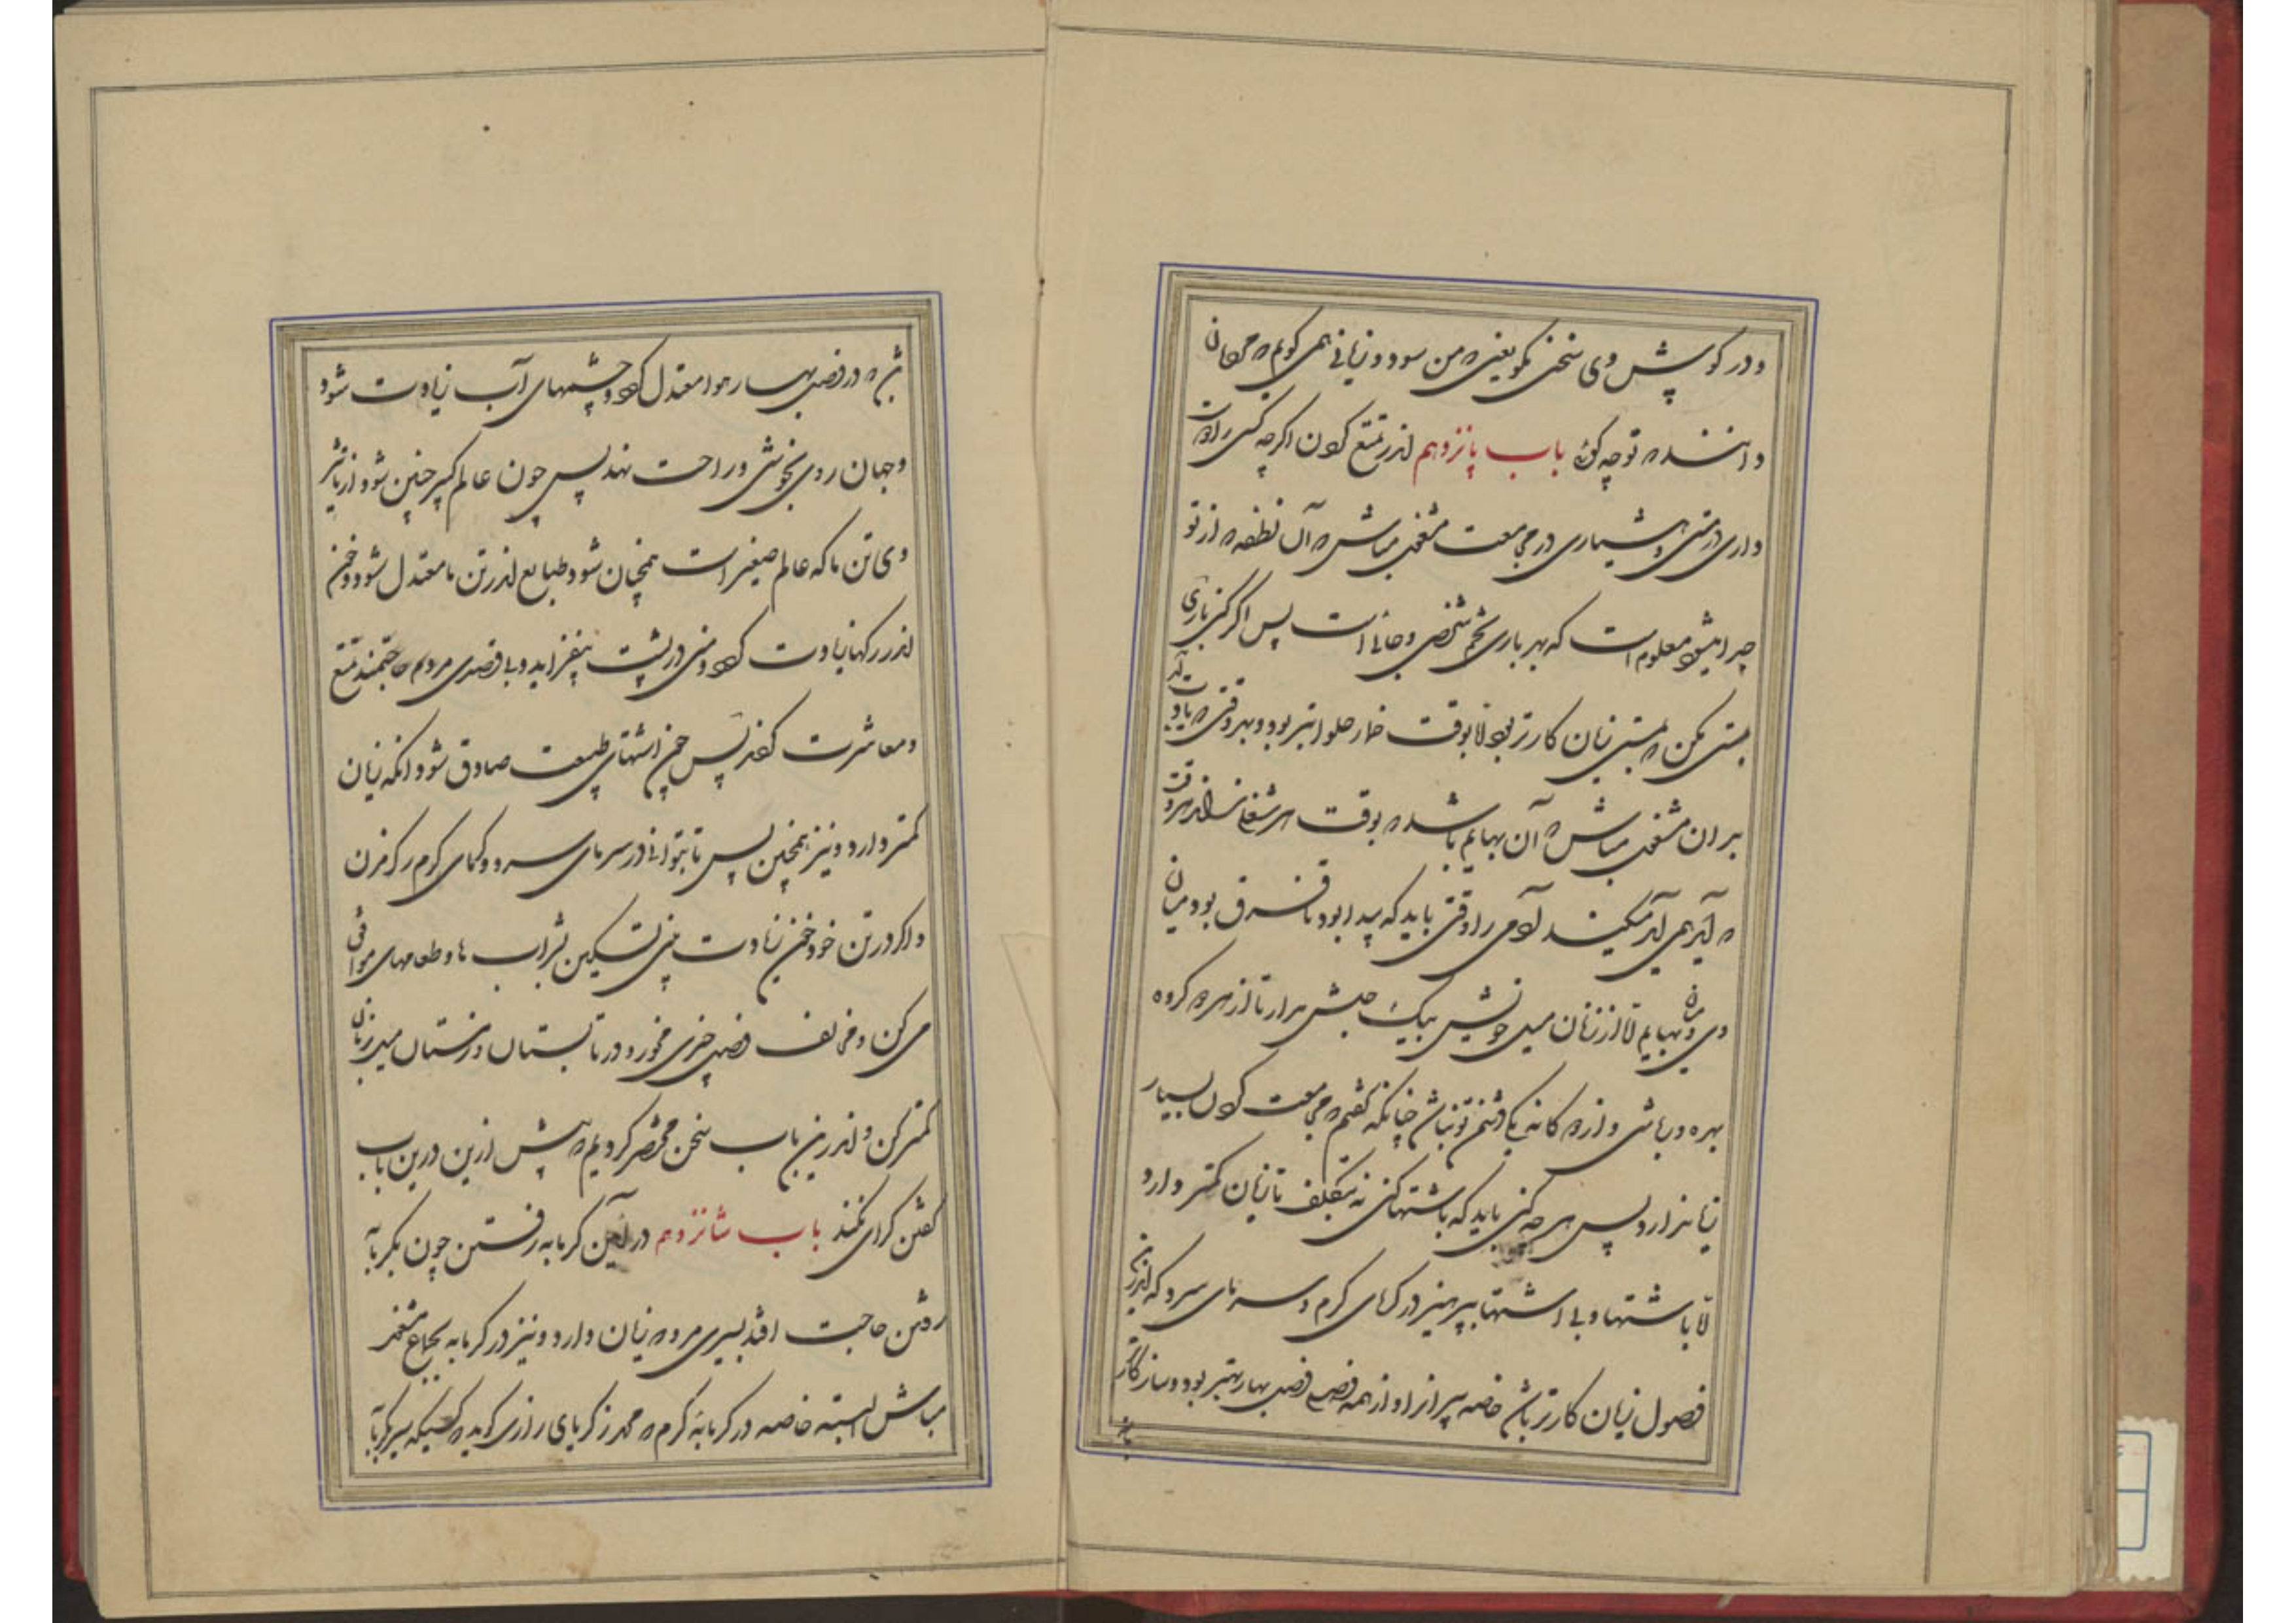 و در گوش وی سخن مگو یعنی که من سود و زیانی همی گویم که مردمان
دانند که تو چه گوئی باب پانزدهم اندر تمتع کردن اگر چه کسی را دوست
داری در مستی و هشیاری در مجامعت مشغول مباش که آن نطفه که از تو
جدا میشود معلوم است که بهر باری تخم شخصی و جانی است پس اگر کنی باری
بمستی مکن که بمستی زیان کارتر بود لا بوقت خمار صلواتیتر بود و بهر وقتی که یادت آید
بدان مشغول مباش که آن بهایم باشد که بوقت هر شغلی نداند هر وقت
که آید همی آید میکند آدمی را وقتی باید که پیدا بود تا فرق بود میان
وی و بهایم لا از زنان میل خویش بیک جنس مدار تا از هر دو گروه
بهره ور باشی و از دو گانه یکی دشمن تو نباشد چنانکه گفتم که مجامعت کردن بسیار
زیان دارد پس هر چه کنی باید که باشتها کنی نه بتکلف تا زیان کمتر دارد
لا باشتها و بی اشتها بپرهیز در گرمای گرم و سرمای سرد که اندرین
فصول زیان کارتر باشد خاصه پیر از او از همه فصلی فصل بهار بهتر بود و سازگارتر
ز آن که در فصل بهار هوا معتدل گردد و چشمهای آب زیادت شود
و جهان روی بخوشی و راحت نهد پس چون عالم کبیر چنین شود از تاثیر
وی تن ما که عالم صغیر است همچنان شود و طبایع اندر تن ما معتدل شود و خون
اندر رگها زیادت گردد و منی در پشت بیفزاید و بی قصدی مردم حاجتمند تمتع
و معاشرت گردد پس چون اشتهای طبیعت صادق شود آنگه زیان
کمتر دارد و نیز همچنین پس تا بتوانی در سرمای سرد و گرمای گرم رگ مزن
و اگر در تن خود خون زیادت بینی تسکین بشراب ها و طعامهای موافق
می کن و مخالف فصل چیزی مخور و در تابستان و زمستان میل بزنان
کمتر کن و اندرین باب سخن مختصر کردیم که بیش ازین درین باب
گفتن گرای نکند باب شانزدهم در آیین گرمابه رفتن چون بگرمابه
رفتن حاجت افتد بسیری مرو که زیان دارد و نیز در گرمابه بجماع مشغول
مباش البته خاصه در گرمابه گرم که محمد زکریای رازی گوید که کسیکه سیر بگرمابه